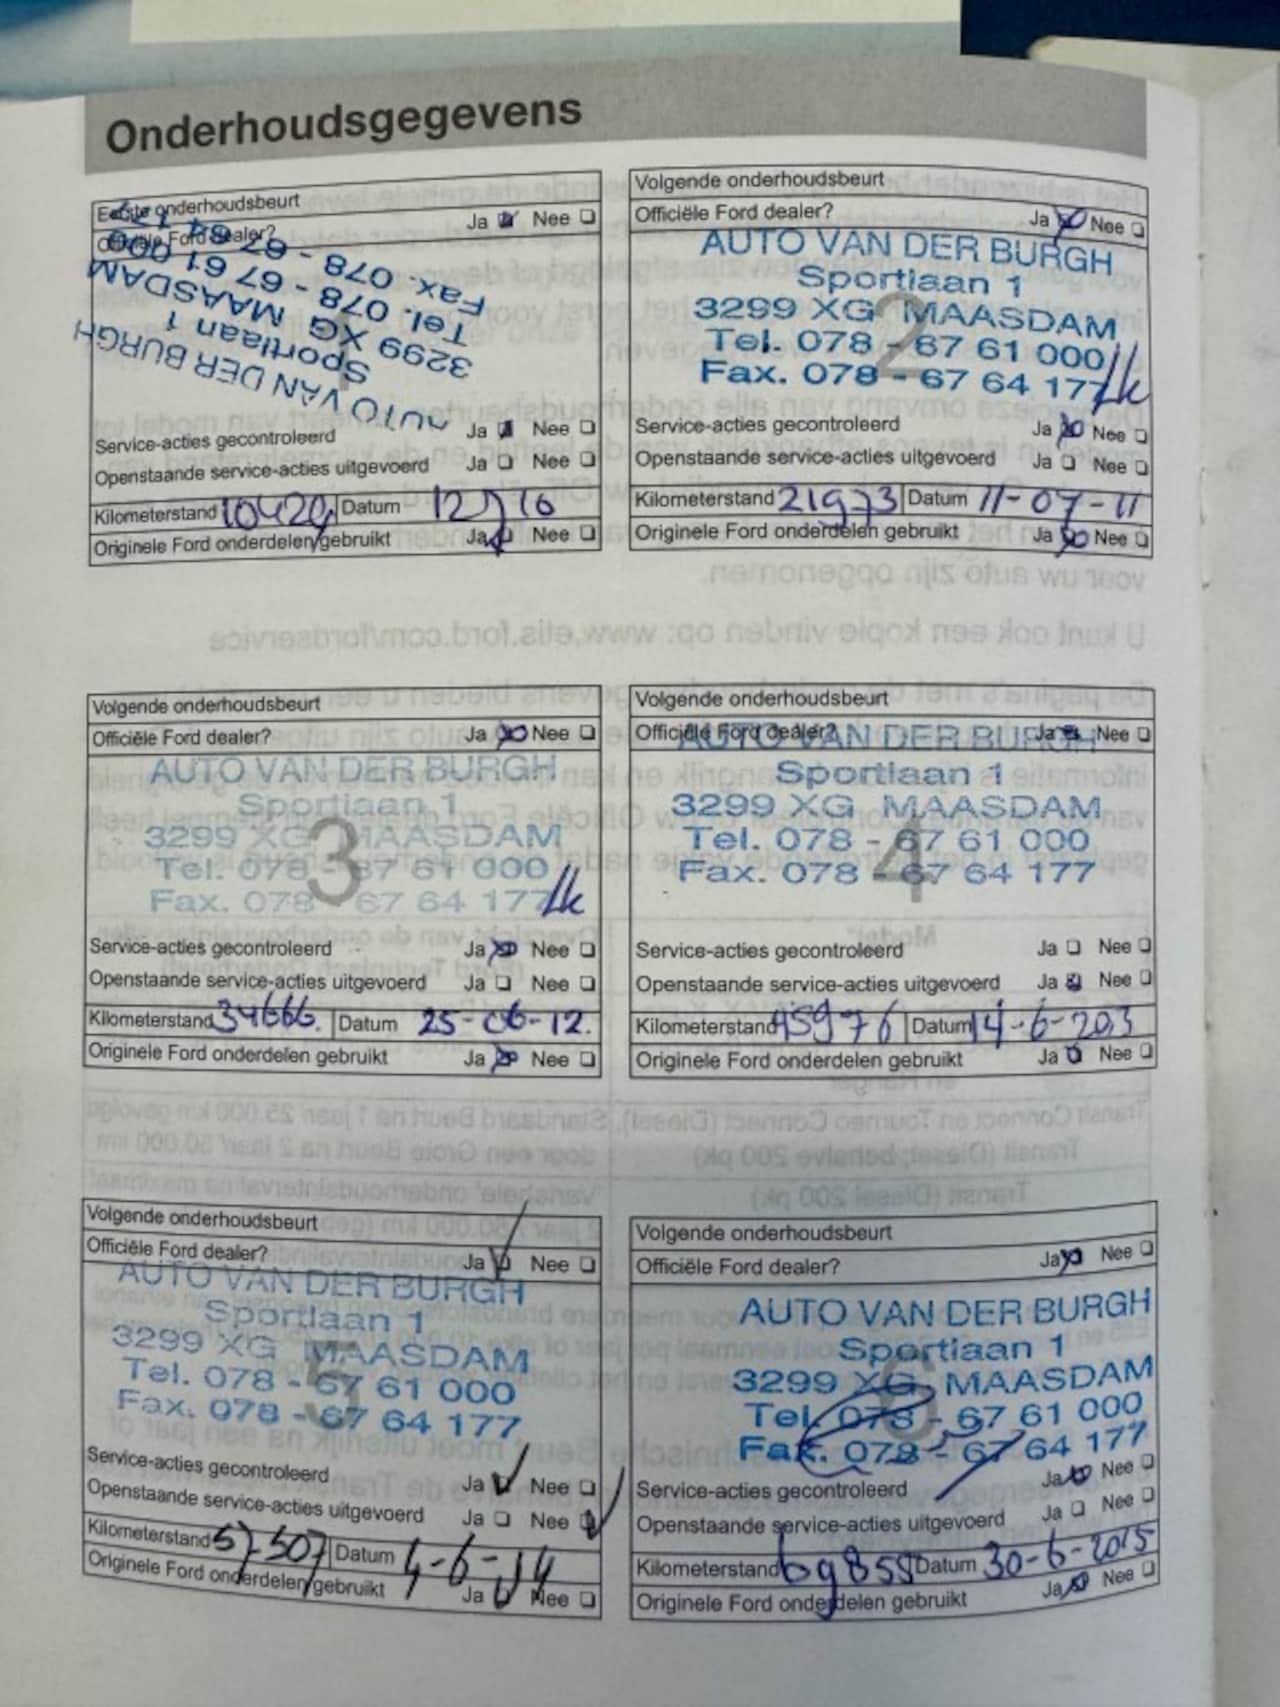 Onderhoudsgegevens
Eerste onderhoudsbeurt
Officiële Ford dealer? Ja Nee
AUTO VAN DER BURGH
Sportlaan 1
3299 XG MAASDAM
Tel. 078 - 67 61 000
Fax. 078 - 67 64 177
Service-acties gecontroleerd Ja Nee
Openstaande service-acties uitgevoerd Ja Nee
Kilometerstand 10420 Datum 12 10
Originele Ford onderdelen gebruikt Ja Nee
Volgende onderhoudsbeurt
Officiële Ford dealer? Ja Nee
AUTO VAN DER BURGH
Sportlaan 1
2
3299 XG MAASDAM
Tel. 078 - 67 61 000
Fax. 078 - 67 64 177
Service-acties gecontroleerd Ja Nee
Openstaande service-acties uitgevoerd Ja Nee
Kilometerstand 21973 Datum 11-07-11
Originele Ford onderdelen gebruikt Ja Nee
Volgende onderhoudsbeurt
Officiële Ford dealer? Ja Nee
AUTO VAN DER BURGH
Sportlaan 1
3
3299 XG MAASDAM
Tel. 078 - 67 61 000
Fax. 078 - 67 64 177
Service-acties gecontroleerd Ja Nee
Openstaande service-acties uitgevoerd Ja Nee
Kilometerstand 34666. Datum 25-06-12.
Originele Ford onderdelen gebruikt Ja Nee
Volgende onderhoudsbeurt
Officiële Ford dealer? Ja Nee
AUTO VAN DER BURGH
Sportlaan 1
4
3299 XG MAASDAM
Tel. 078 - 67 61 000
Fax. 078 - 67 64 177
Service-acties gecontroleerd Ja Nee
Openstaande service-acties uitgevoerd Ja Nee
Kilometerstand 45976 Datum 14-6-2013
Originele Ford onderdelen gebruikt Ja Nee
Volgende onderhoudsbeurt
Officiële Ford dealer? Ja Nee
AUTO VAN DER BURGH
Sportlaan 1
5
3299 XG MAASDAM
Tel. 078 - 67 61 000
Fax. 078 - 67 64 177
Service-acties gecontroleerd Ja Nee
Openstaande service-acties uitgevoerd Ja Nee
Kilometerstand 57507 Datum 4-6-14
Originele Ford onderdelen gebruikt Ja Nee
Volgende onderhoudsbeurt
Officiële Ford dealer? Ja Nee
AUTO VAN DER BURGH
Sportlaan 1
6
3299 XG MAASDAM
Tel. 078 - 67 61 000
Fax. 078 - 67 64 177
Service-acties gecontroleerd Ja Nee
Openstaande service-acties uitgevoerd Ja Nee
Kilometerstand 69855 Datum 30-6-2015
Originele Ford onderdelen gebruikt Ja Nee